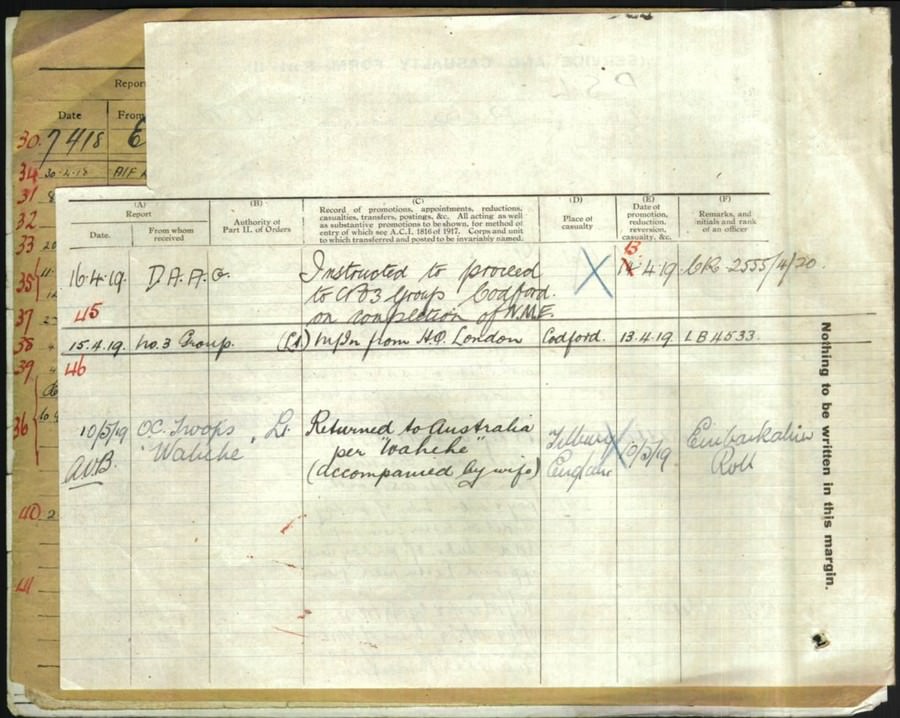 Repor
Date
From
30
7 4 18
E
34
30-4-18
AIF
31
8
32
33
20
35
11
37
38
39
36
40
2
41
(A)
Report
Date.
From whom
received
(B)
Authority of
Part II. of Orders
(C)
Record of promotions, appointments, reductions,
casualties, transfers, postings, &c. All acting as well
as substantive promotions to be shown, for method of
entry of which see A.C.I. 1816 of 1917. Corps and unit
to which transferred and posted to be invariably named.
(D)
Place of
casualty
(E)
Date of
promotion,
reduction,
reversion,
casualty, &c.
(F)
Remarks, and
initials and rank
of an officer
16.4.19. D.A.A.G. Instructed to proceed 13 4.19.
to No 3 Group Codford.
on completion of N.M.E.
45
15.4.19. No. 3 Group. M/In from H.Q. London Codford. 13.4.19 LB 4533
46
10/5/19 O.C. Troops Lt. Returned to Australia Tilbury 10/5/19 Embarkation
"Wahehe" per "Wahehe" England Roll
(accompanied by wife)
Nothing to be written in this margin.
2